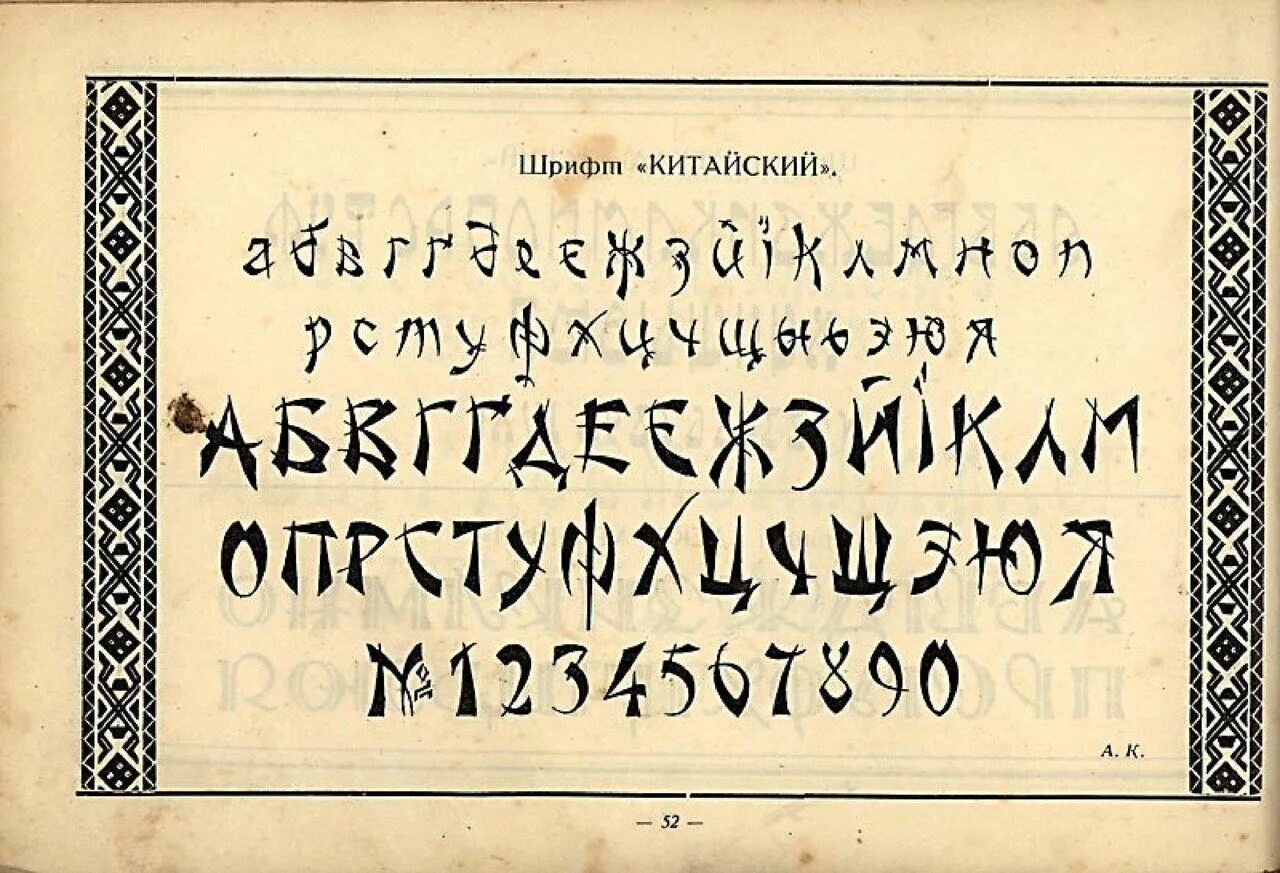 Шрифт «КИТАЙСКИЙ».
а б в г ґ д е є ж з й ї к л м н о п
р с т у ф х ц ч щ ы ь э ю я
А Б В Г Ґ Д Е Є Ж З Й Ї К Л М
О П Р С Т У Ф Х Ц Ч Щ Э Ю Я
№ 1 2 3 4 5 6 7 8 9 0
А. К.
— 52 —